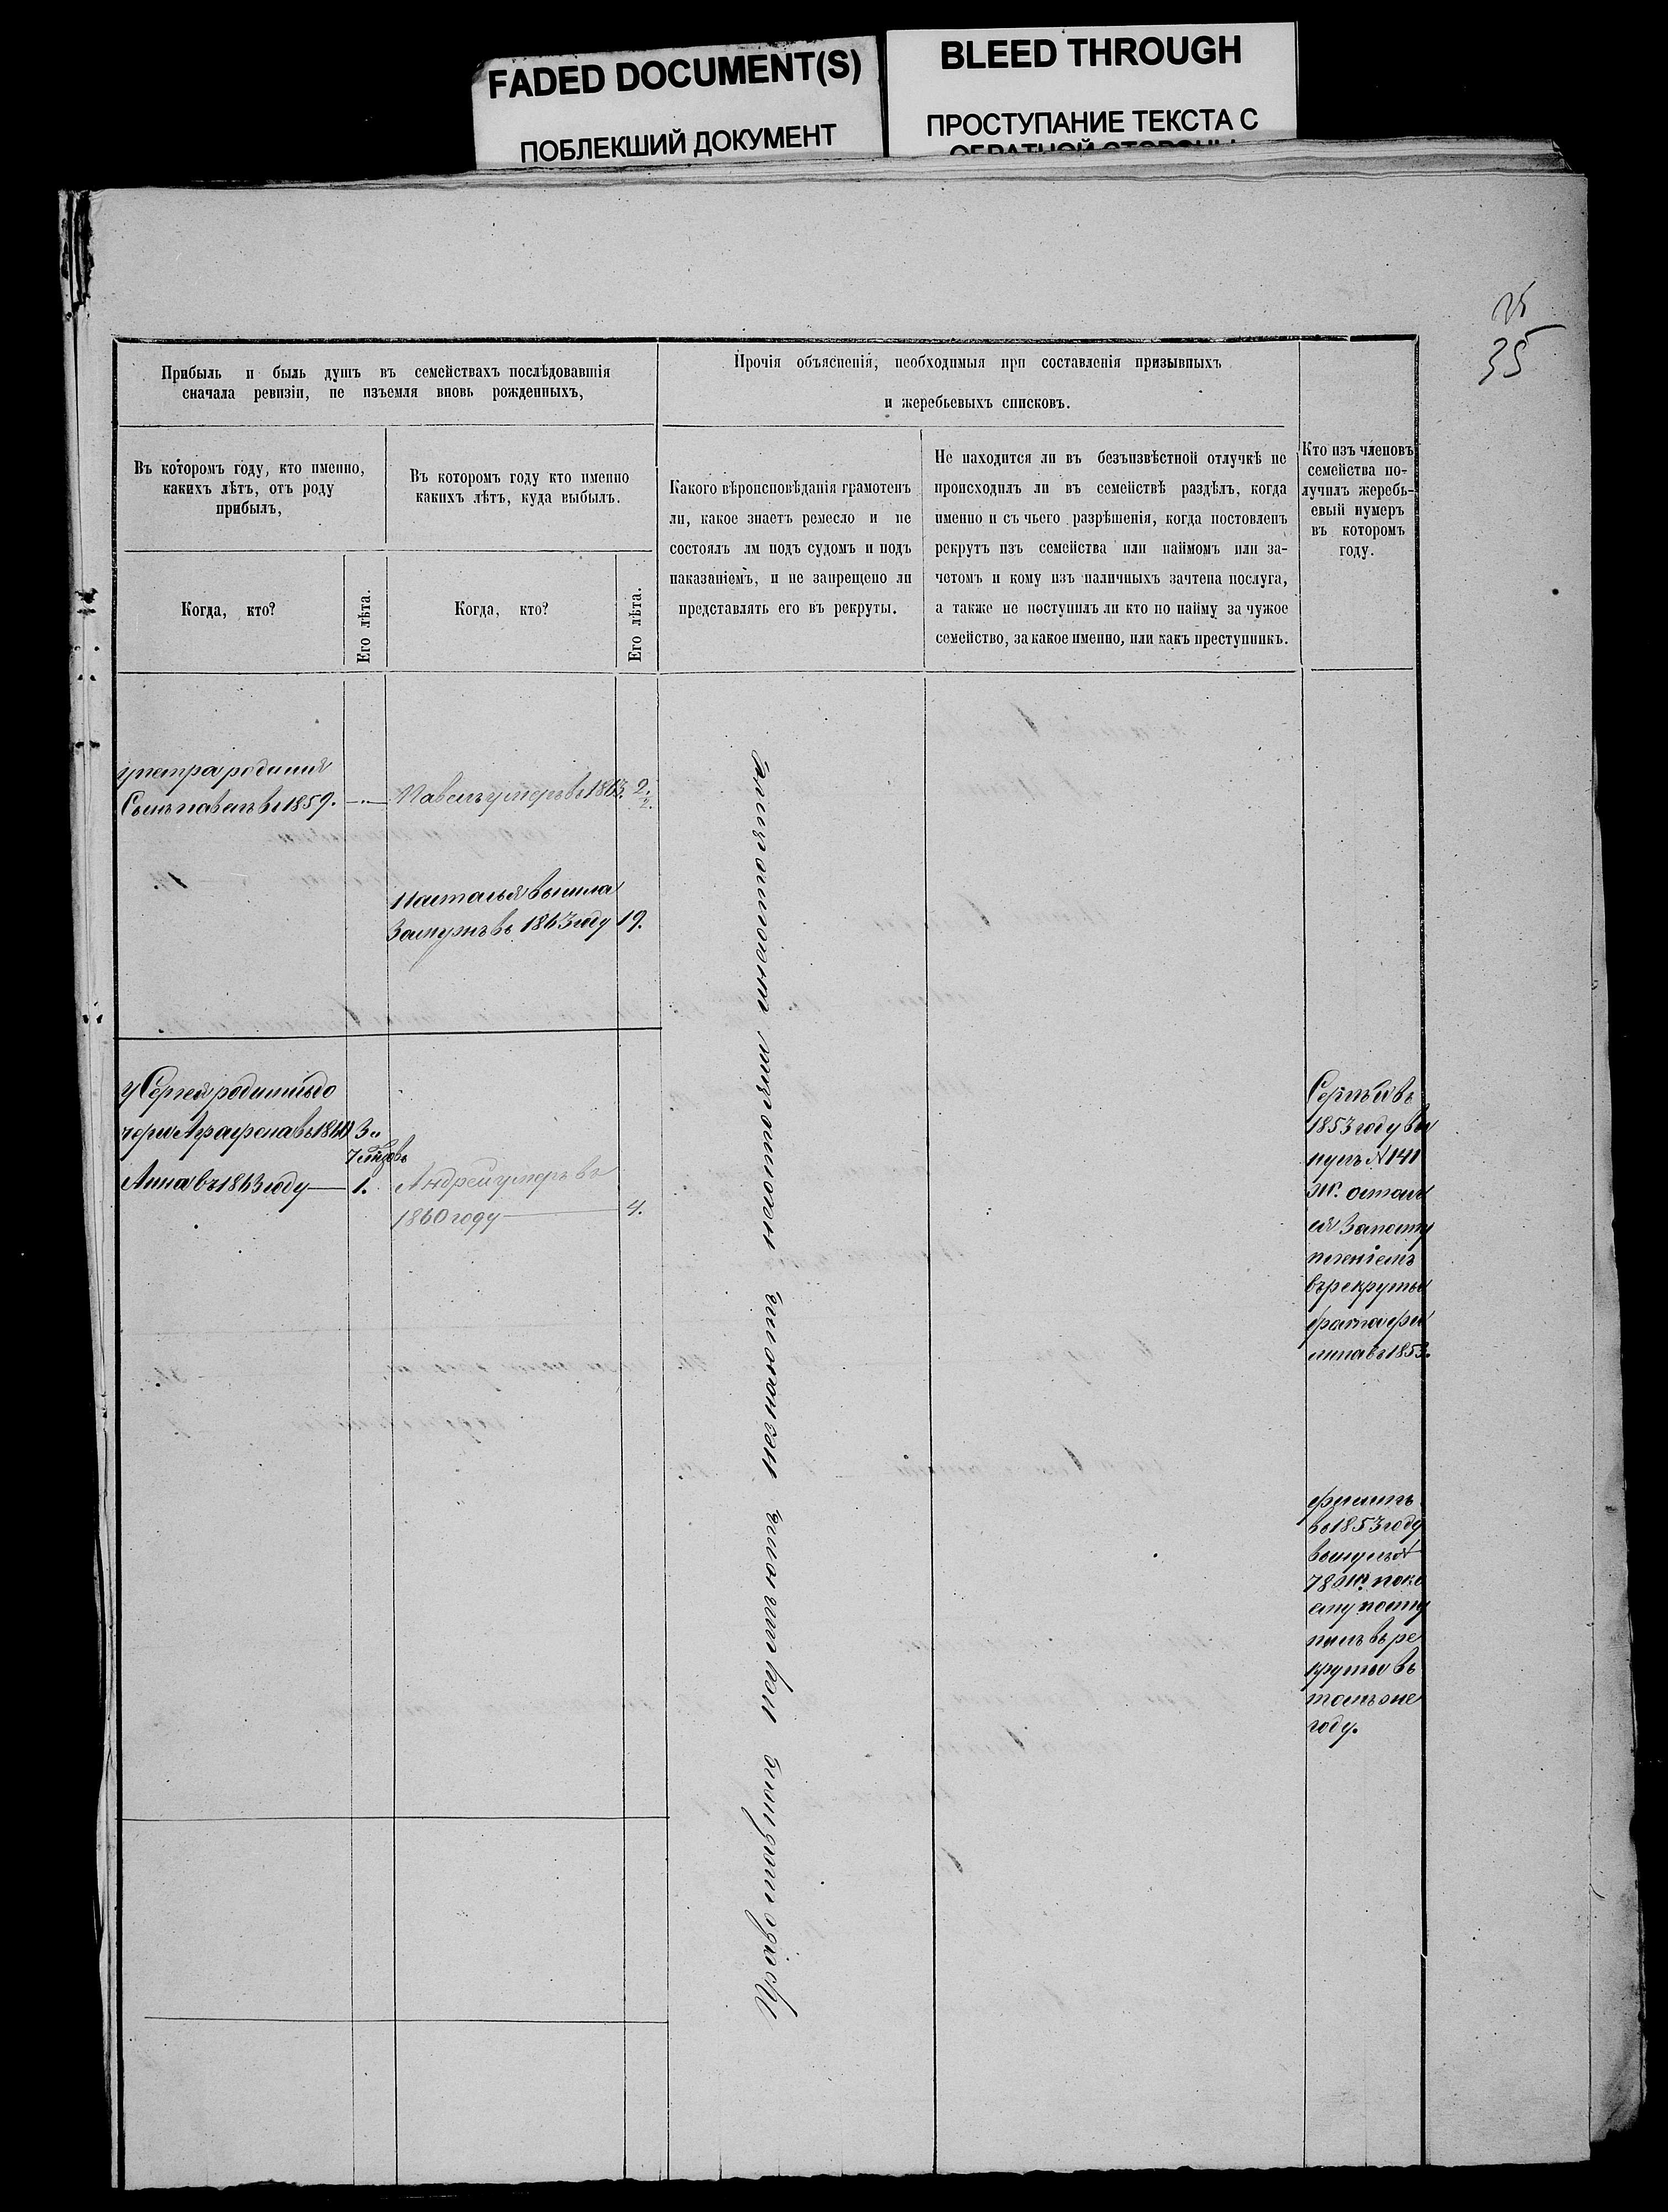 FADED DOCUMENT(S)
ПОБЛЕКШИЙ ДОКУМЕНТ
BLEED THROUGH
ПРОСТУПАНИЕ ТЕКСТА С
ОБРАТНОЙ СТОРОНЫ
35
Прибыль и быль душъ въ семействахъ послѣдовавшія
сначала ревизіи, не изъемля вновь рожденныхъ,
Въ которомъ году, кто именно,
какихъ лѣтъ, отъ роду
прибылъ,
Когда, кто?
Его лѣта.
Въ которомъ году кто именно
какихъ лѣтъ, куда выбылъ.
Когда, кто?
Его лѣта.
Прочія объясненія, необходимыя при составленія призывныхъ
и жеребьевыхъ списковъ.
Какого вѣроисповѣданія грамотенъ
ли, какое знаетъ ремесло и не
состоялъ лм подъ судомъ и подъ
наказаніемъ, и не запрещено ли
представлять его въ рекруты.
Не находится ли въ безъизвѣстной отлучкѣ не
происходилъ ли въ семействѣ раздѣлъ, когда
именно и съ чьего разрѣшенія, когда постовленъ
рекрутъ изъ семейства или наймомъ или за-
четомъ и кому изъ наличныхъ зачтена послуга,
а также не поступилъ ли кто по найму за чужое
семейство, за какое именно, или какъ преступникъ.
Кто изъ членовъ
семейства по-
лучилъ жеребь-
евый нумеръ
въ которомъ
году.
у петра родился
Сынъ павелъ в 1859.
Павелъ умеръ в 1863. 2.
Наталья вышла
Замужъ въ 1863 году 19.
у Сергея родились до
чери Аграфена въ 1860 3и
Анна въ 1863 году 1.
Андрей умеръ въ
1860 году 4.
Православнаго
Сергѣй въ
1853 году вы
нулъ N 141
Ж. остал
ся За посту
пленіемъ
въ рекруты
брата фи
липа въ 1853.
филипъ
въ 1853 году
вынулъ N
78 Ж. по ко
ему посту
пилъ въ ре
круты въ
томъ же
году.